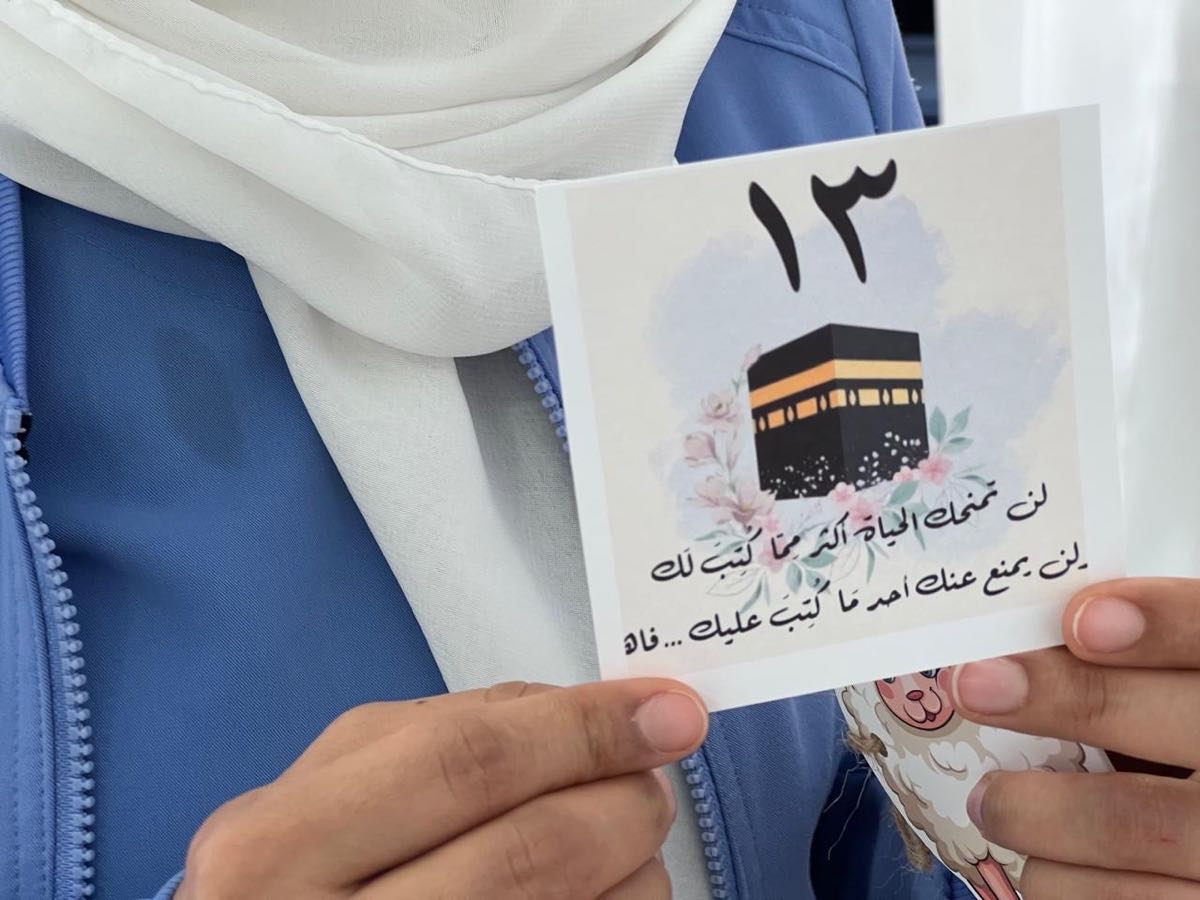 ١٣
لن تمنحك الحياة أكثر مِمَّا كُتِبَ لَك
ولن يمنع عنك أحد مَا كُتِبَ عليك ... فاه